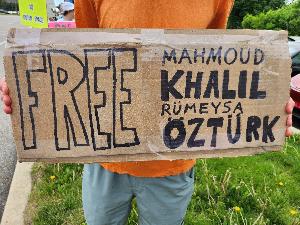 FREE
MAHMOUD
KHALIL
RÜMEYSA
ÖZTÜRK